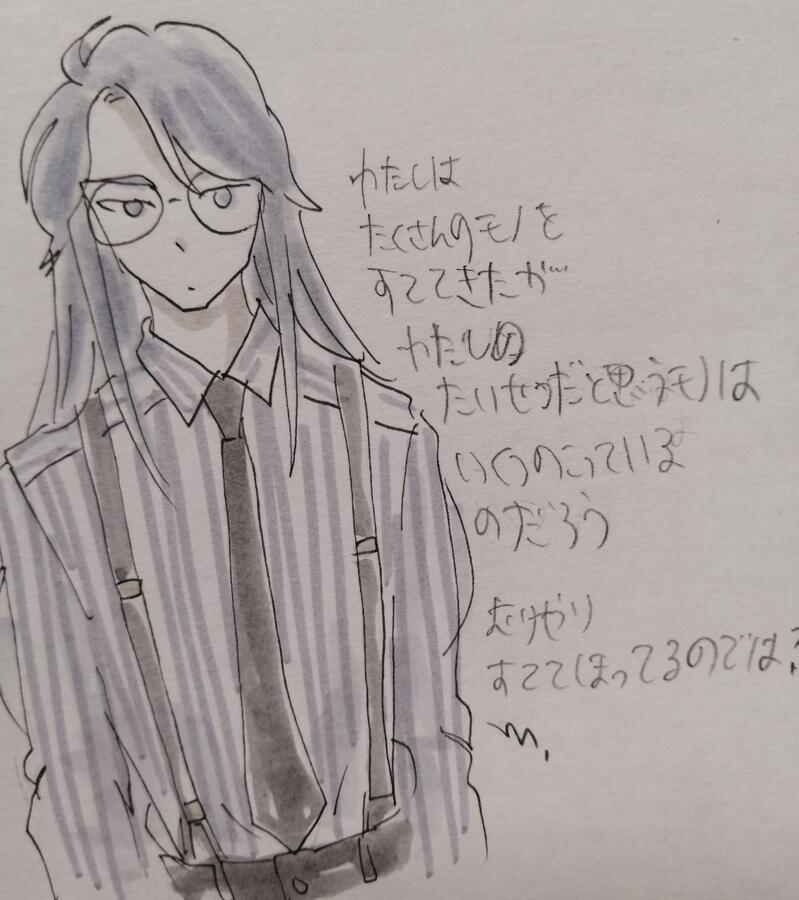 わたしは
たくさんのモノを
すててきたが…
わたしの
たいせつだと思うモノは
いくつのこっている
のだろう
すててしまってるのでは?